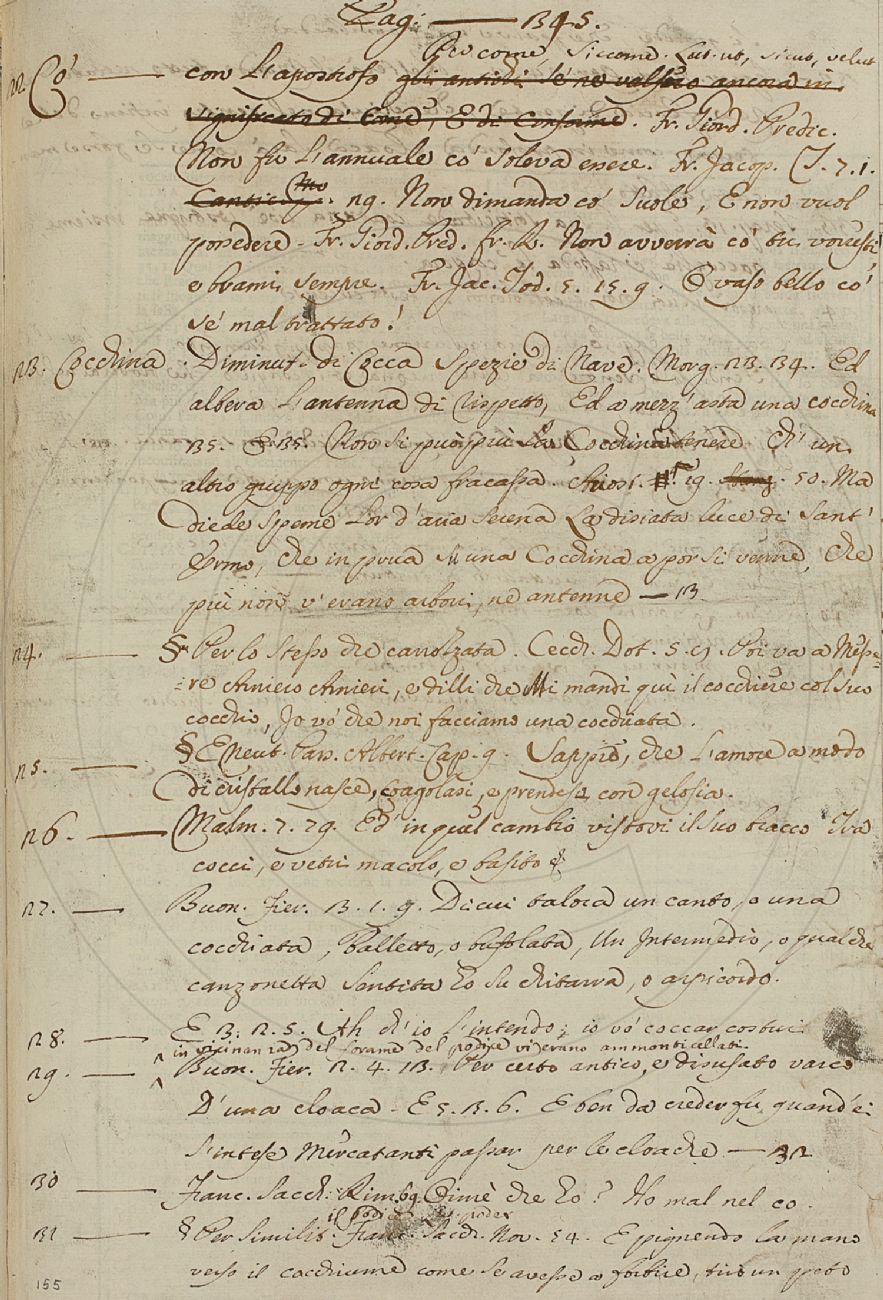 Pag. — 345.
Per come, Siccome. Lat. ut, sicut, velut
22. Co' — con L'apostrofo gli antichi se ne valsero ancora in
significato di Come, E di Conforme. Fr. Giord. Predic.
Non fu L'annuale co' soleva essere. Fr. Jacop. T. 7. 1.
Cantic. mo. 29. Non dimanda co' suole, E non vuol
possedere. Fr. Giord. Pred. fr. R. Non avverrà co' tu vorresti,
e brami sempre. Fr. Jac. Tod. 5. 15. 9. O vaso bello co'
se' mal trattato!
23. Cocchina. Diminut. di Cocca Spezie di Nave. Morg. 20. 34. Ed
albera L'antenna di rispetto, Ed a mezz'asta una cocchina
35. E 35. Non si può più La Cocchina tenere Ch'un
altro gruppo ogni cosa fracassa. Arios. 19. 50. Ma
diede speme Lor d'aria serena La disiata luce di Sant'
Ermo, Che in prua su una Cocchina a por si venne, Che
più non v'erano arbori, nè antenne —
24. — § Per lo Stesso che carrozzata. Cecch. Dot. 5. 9. Poi va a Messe-
re Amieri Amieri, e dilli che Mi mandi quì il cocchiere col suo
cocchio, Io vo' che noi facciamo una cocchiata.
25. — § E neut. pass. Albert. Cap. 9. Sappie, che L'amore a modo
di cristallo nasce, coagolasi, e prendesi con gelosia.
26. — Malm. 7. 79. Ed in quel cambio vistovi il suo bracco Tra
cocci, e vetri macolo, e basito
27. — Buon. Fier. 3. 1. 9. Di cui talora un canto, o una
cocchiata, Balletto, o bufolata, Un Intermedio, o qualche
canzonetta Sentita Ho su chitarra, o arpicordo.
28. — E 3. 2. 5. Ah ch'io L'intendo; io vo' coccar costui
in vicinanza del forame del podice vi erano ammonticellati.
29. — Buon. Fier. 2. 4. 13. Per certo antico, e disusato varco
D'una cloaca. E 5. 3. 6. E ben da creder fu, quand'ei
S'intese Mercatanti passar per le cloache —
30 — Franc. Sacch. Rim. 69. Oimè che ho? Ho mal nel co.
il podice
31 — § Per Similit. Franc. Sacch. Nov. 54. E pignendo la mano
verso il cocchiume come se avesse a
155